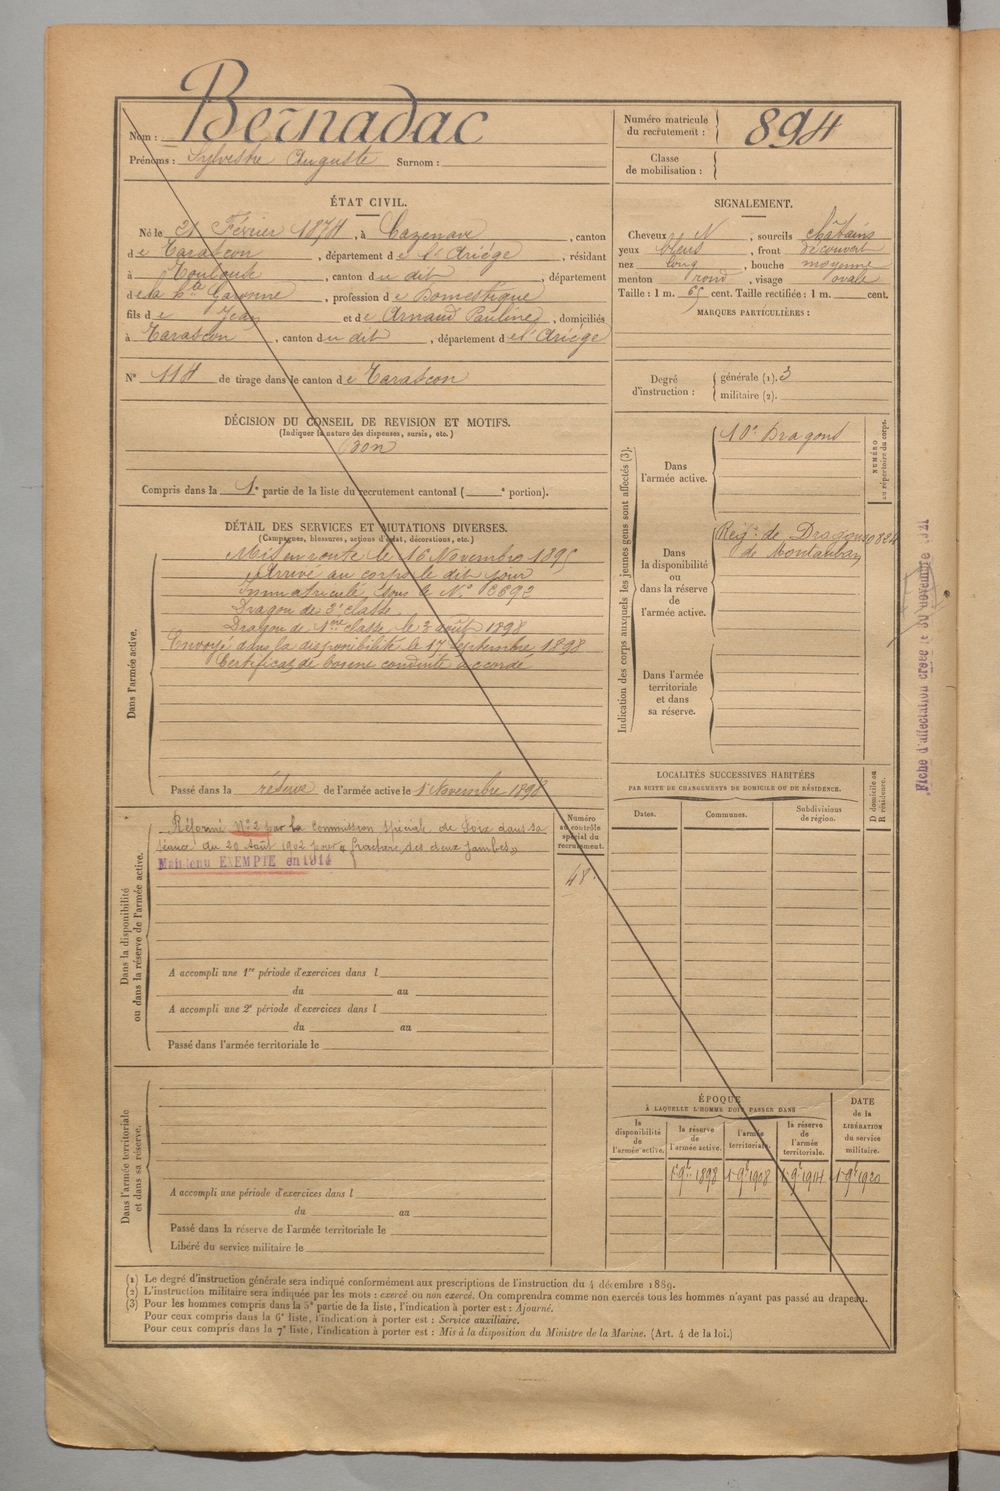 Nom : Bernadac
Prénoms : Sylvestre Auguste Surnom :
Numéro matricule du recrutement : 894
Classe de mobilisation :
ÉTAT CIVIL.
Né le 21 Février 1874, à Cazenave, canton
de Tarascon, département de l'Ariège, résidant
à Toulouse, canton du dit, département
de la Hte Garonne, profession de Domestique
fils de Jean et de Arnaud Pauline, domiciliés
à Tarascon, canton du dit, département de l'Ariège
N° 118 de tirage dans le canton de Tarascon
SIGNALEMENT.
Cheveux N, sourcils châtains
yeux bleus, front découvert
nez long, bouche moyenne
menton rond, visage ovale
Taille : 1 m. 65 cent. Taille rectifiée : 1 m. cent.
MARQUES PARTICULIÈRES :
Degré d'instruction : générale (1). 3
militaire (2).
DÉCISION DU CONSEIL DE REVISION ET MOTIFS.
(Indiquer la nature des dispenses, sursis, etc.)
Bon
Compris dans la 1e partie de la liste du recrutement cantonal ( e portion).
DÉTAIL DES SERVICES ET MUTATIONS DIVERSES.
(Campagnes, blessures, actions d'éclat, décorations, etc.)
Dans l'armée active.
Mis en route le 16 Novembre 1895
Arrivé au corps le dit jour
Immatriculé sous le N°
Dragon de 2e classe.
Dragon de 1ère classe le 3 août 1898
Envoyé dans la disponibilité le 17 Septembre 1898
Certificat de bonne conduite accordé
Passé dans la réserve de l'armée active le 1er Novembre 1898
Indication des corps auxquels les jeunes gens sont affectés (3).
Dans l'armée active.
10e Dragons
NUMÉRO au répertoire du corps.
Dans la disponibilité ou dans la réserve de l'armée active.
Régt de Dragons 10824
de Montauban
Dans l'armée territoriale et dans sa réserve.
Fiche d'affectation créée le 30 novembre 1921
LOCALITÉS SUCCESSIVES HABITÉES
PAR SUITE DE CHANGEMENTS DE DOMICILE OU DE RÉSIDENCE.
Dates. Communes. Subdivisions de région.
D domicile ou R résidence.
Dans la disponibilité ou dans la réserve de l'armée active.
Numéro au contrôle spécial du recrutement.
48
Réformé N° 2 par la Commission spéciale de Foix dans sa
séance du 20 Août 1902 pour « fracture des deux jambes »
Maintenu EXEMPTE en 1914
A accompli une 1re période d'exercices dans l
du au
A accompli une 2e période d'exercices dans l
du au
Passé dans l'armée territoriale le
Dans l'armée territoriale et dans sa réserve.
A accompli une période d'exercices dans l
du au
Passé dans la réserve de l'armée territoriale le
Libéré du service militaire le
ÉPOQUE
À LAQUELLE L'HOMME DOIT PASSER DANS
la disponibilité de l'armée active.
la réserve de l'armée active.
l'armée territoriale.
la réserve de l'armée territoriale.
DATE de la LIBÉRATION du service militaire.
1er 9bre 1898 1er 9bre 1908 1er 9bre 1914 1er 9bre 1920
(1) Le degré d'instruction générale sera indiqué conformément aux prescriptions de l'instruction du 4 décembre 1889.
(2) L'instruction militaire sera indiquée par les mots : exercé ou non exercé. On comprendra comme non exercés tous les hommes n'ayant pas passé au drapeau.
(3) Pour les hommes compris dans la 5e partie de la liste, l'indication à porter est : Ajourné.
Pour ceux compris dans la 6e liste, l'indication à porter est : Service auxiliaire.
Pour ceux compris dans la 7e liste, l'indication à porter est : Mis à la disposition du Ministre de la Marine. (Art. 4 de la loi.)